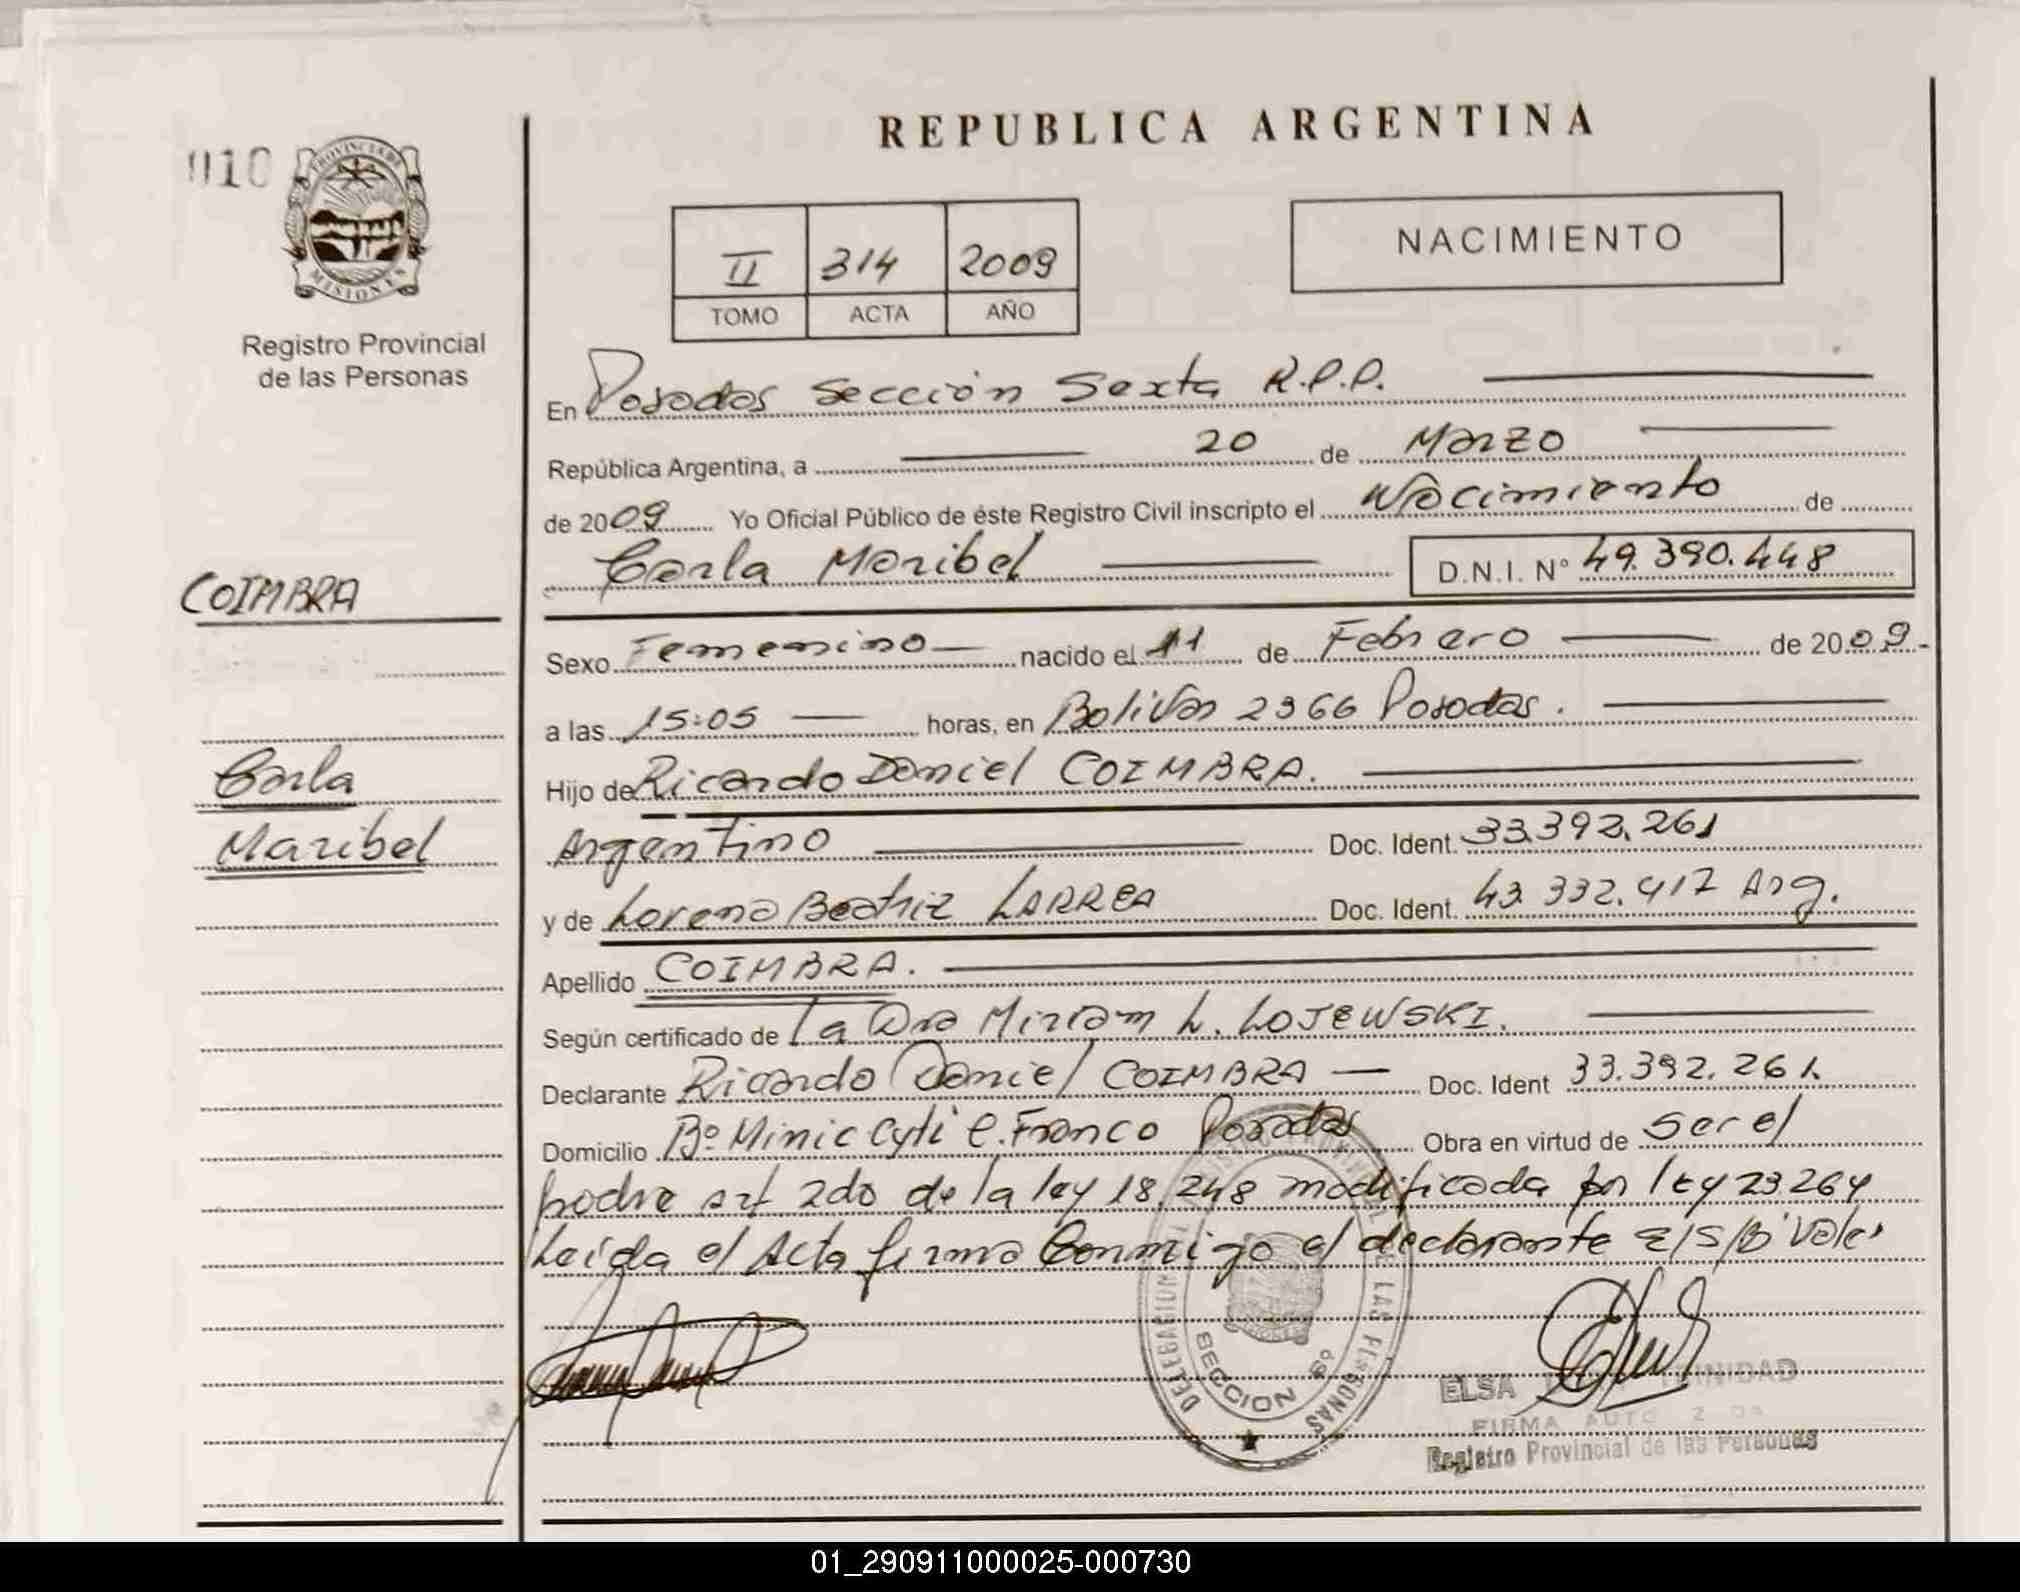 REPUBLICA ARGENTINA
010
PROVINCIA DE
MISIONES
Registro Provincial
de las Personas
II 314 2009
TOMO ACTA AÑO
NACIMIENTO
En Posadas Sección Sexta R.P.P.
República Argentina, a 20 de Marzo
de 2009 Yo Oficial Público de éste Registro Civil inscripto el Nacimiento de
Carla Maribel D.N.I. N° 49.390.448
COIMBRA
Sexo Femenino nacido el 11 de Febrero de 2009.-
a las 15:05 horas, en Bolivar 2366 Posadas.
Carla
Hijo de Ricardo Daniel COIMBRA.
Maribel
Argentino Doc. Ident. 33.392.261
y de Lorena Beatriz LARREA Doc. Ident. 43.332.417 Arg.
Apellido COIMBRA.
Según certificado de La Dra Miriam L. LOJEWSKI.
Declarante Ricardo Daniel COIMBRA Doc. Ident 33.392.261.
Domicilio B° C. Franco Posadas Obra en virtud de ser el
padre art 2do de la ley 18.248 modificada por ley 23.264
Leida el Acta firma Conmigo el declarante E/S/B Vale
DELEGACION LAS PERSONAS
SECCION 6°
ELSA TRINIDAD
FIRMA AUTO
Registro Provincial de las Personas
01_290911000025-000730